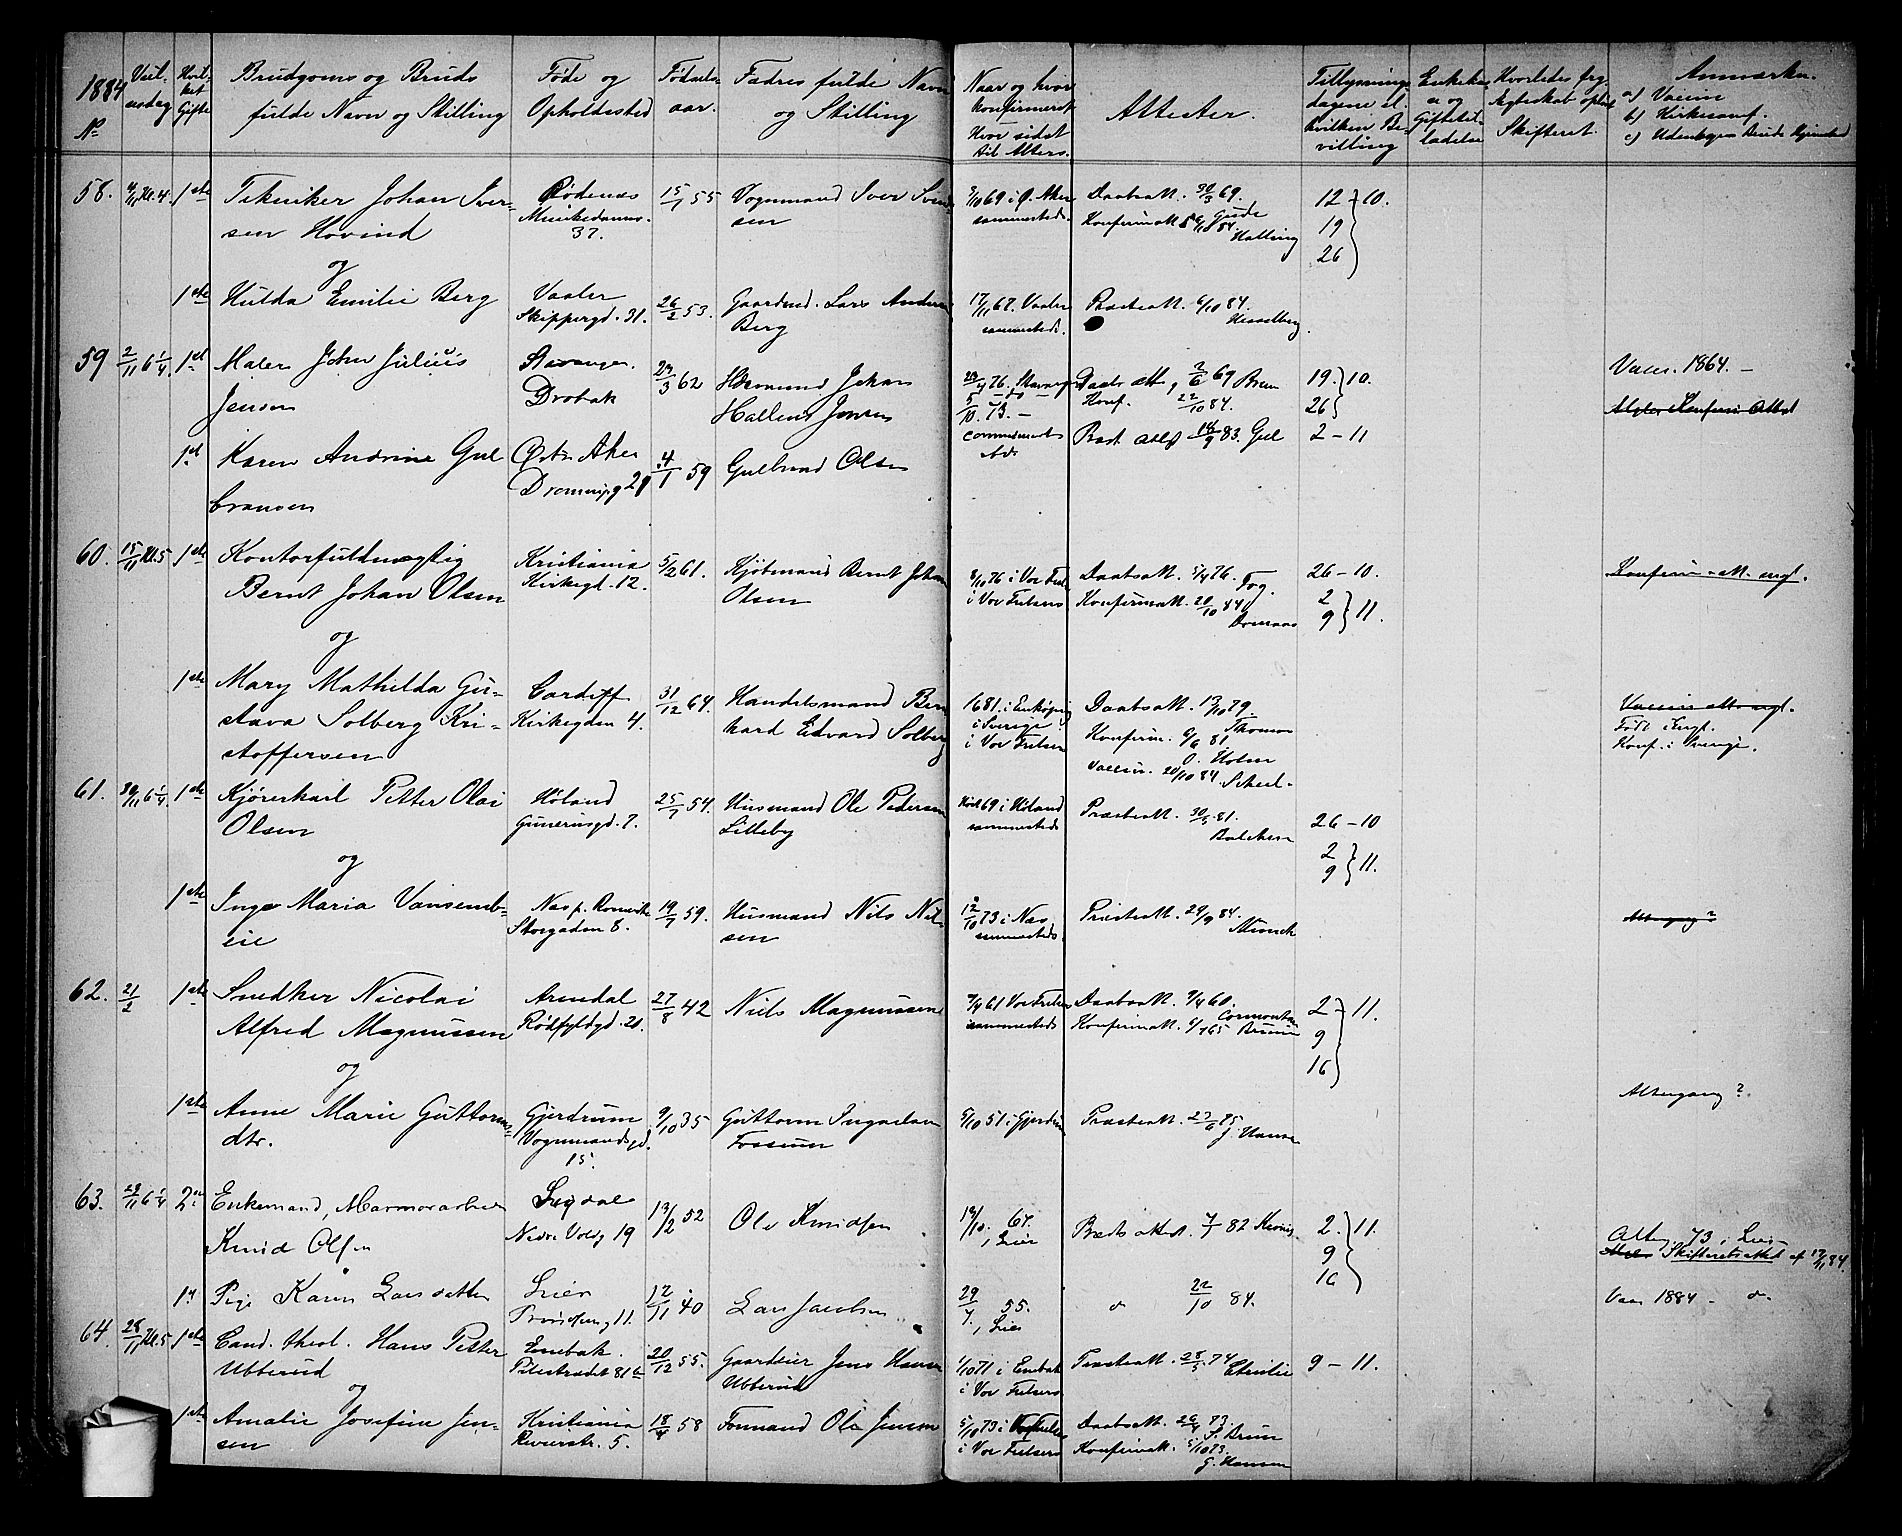 1884
No
Viel-
sesdag
Hvil-
ket
Gifte
Brudgoms og Bruds
fulde Navn og Stilling
Føde og
Opholdssted
Fødsels-
aar.
Fædres fulde Navn
og Stilling
Naar og hvor
konfirmeret
Hvor sidst
til Alters.
Attester.
Tillysnings-
dagene el.
hvilken Be-
villing
Hvorledes frg
Ægteskab opløst
Skifteret.
Anmærkn.
a) Vaccin
b) Kirkesamf.
58. 4/11 Kl. 4. 1ste Tekniker Johan Iver-
sen Hovind
Rødenæs
Munkedams.
37.
15/7 55
Vognmand Iver Svend-
sen
9/10 69 i Ø. Aker
sammesteds.
Daabsatt. 30/3 69. Gude
Konfirmatt. 5/10 84 Halling
12 - 10.
19
26
og
1ste Hulda Emilie Berg
Vaaler
Skippergd. 31.
26/2 53.
Gaardmd. Lars Andersen
Berg
17/11 67. Vaaler
sammesteds.
Præsteatt. 6/10 84.
Hesselberg.
59 2/11 6 1/4. 1st Maler John Julius
Jensen
Stavanger.
Drøbak
29/3 62
Husmand Johan
Hallens Jensen
Daabs att, 2/6 69 Brun
Konf. 22/10 84.
19. 10.
26
Vacc. 1864. —
1st Karen Andrine Gul
bransen
Østre Aker
Dronningg 21
4/1 59
Gulbrand Olsen
5/10. 73. —
Præst. attest 18/9 83. Gul
2 - 11
60. 15/11 Kl. 5 1ste Kontorfuldmægtig
Bernt Johan Olsen
Kristiania
Kirkegd. 12.
5/2 61.
Kjøbmand Bernt Johan
Olsen
8/10 76 i Vor Frel
i Vor Frelsers
Daabsatt. 5/4 76. Fog.
Konfirmatt. 20/10 84
26 - 10.
2
9 11.
Konfirm - att. mgl.
og
1ste Mary Mathilda Gu-
stava Solberg Kri-
stoffersen
Cardiff
Kirkegaden 4.
31/12 64.
Handelsmand Bern
hard Edvard Solberg
1681. i Enköping
i Sverige
i Vor Frelser
Daabsatt. 13/10 79.
Thomas
Konfirm. 6/6 81
O. Holm
Vaccin. 20/10 84. Scheel-
Vaccin att mgl.
Født i Engl.
Konf. i Sverige.
61. 30/11 6 1/4. 1ste Kjørerkarl Petter Olai
Olsen
Høland
Gunerusgd. 7.
25/7 54.
Husmand Ole Pedersen
Lilleby
Høst 69 i Høland
sammesteds
Præsteatt. 30/5 81.
Balchen
26 - 10
2
9 11.
og
1ste Inga Maria Vansemb-
eie
Næs p. Romerike
Storgaden 8.
19/7 59.
Husmand Nils Nil-
sen
12/10 73 i Næs
sammesteds
Præsteatt. 29/9 84.
Munch
Altergang?
62. 21/2 1ste Snedker Nicolai
Alfred Magnussen
Arendal
Rødfyldgd. 20.
27/8 42
Niels Magnussen
7/4 61 Vor Frelsers
sammesteds
Daabsatt. 9/4 60.
Cormontan
Konfirmatt. 1/7 65 Bruun
2 - 11.
9
16
og
1ste Anne Marie Guttorms-
dtr.
Gjerdrum
Vognmandsgd.
15.
9/10 35
Guttorm Ingvalsen
Fossum
5/10 51 i Gjerdrum
Præsteatt. 23/6 75
J. Hansen
Altergang?
63. 29/11 6 1/4 2n Enkemand, Marmorarbeider
Knud Olsen
Sigdal
Nedre Voldg 19
13/2 52
Ole Knudsen
19/10. 67.
, Lier
Præsts attest. 7/7 82
2. 11.
9
16
Alterg. 73, Lier
Skifteretsattest af 17/11 84.
1st Pige Karen Larsdatter
Lier
11.
12/11 40
Lars Jacobsen
29/7. 55.
, Lier
do 22/10 84.
Vacc 1884 - do.
64. 28/11 Kl. 5 1ste Cand. theol. Hans Petter
Ubberud
Enebak.
Pilestrædet 81 b
20/12 55.
Gaardeier Jens Hansen
Ubberud
1/10 71 i Enebak
i Vor Frelsers
Præsteatt. 28/5 74
Christie
9 - 11.
og
1ste Amalie Josefine Jen-
sen
Kristiania
Revierstr. 5.
18/4 58
Formand Ole Jensen
5/10 73 i Vor Frelser
i Vor Frelsers
Daabsatt. 26/4 73.
S. Bruun
Konfirmatt. 5/10 73.
G. Hansen